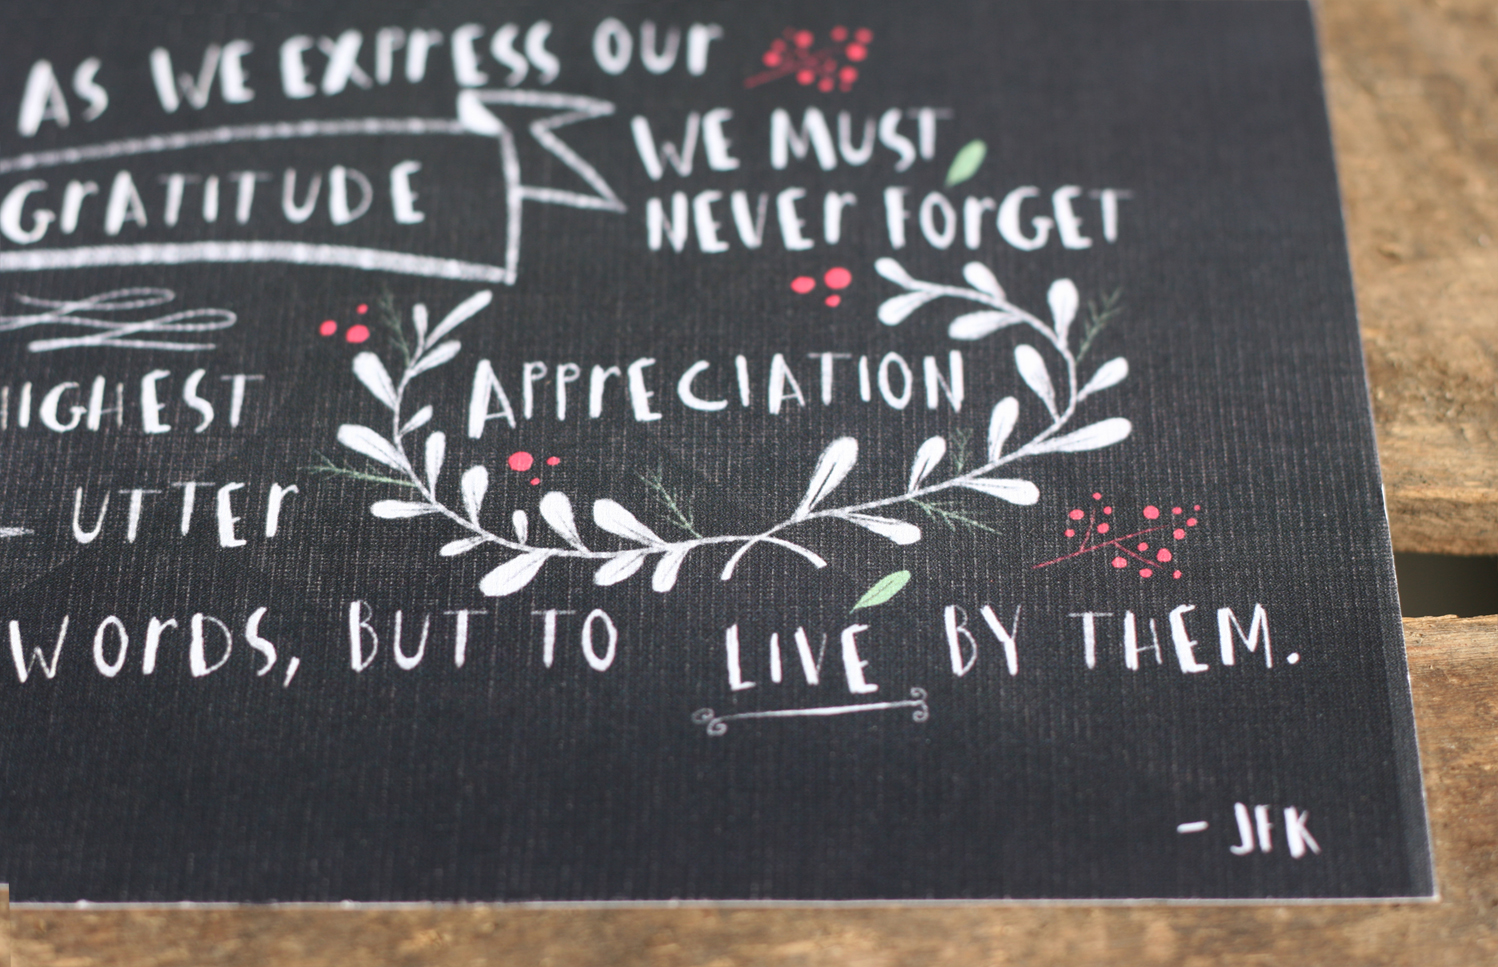 AS WE EXPRESS OUR
GRATITUDE
WE MUST
NEVER FORGET
HIGHEST
APPRECIATION
UTTER
WORDS, BUT TO LIVE BY THEM.
- JFK